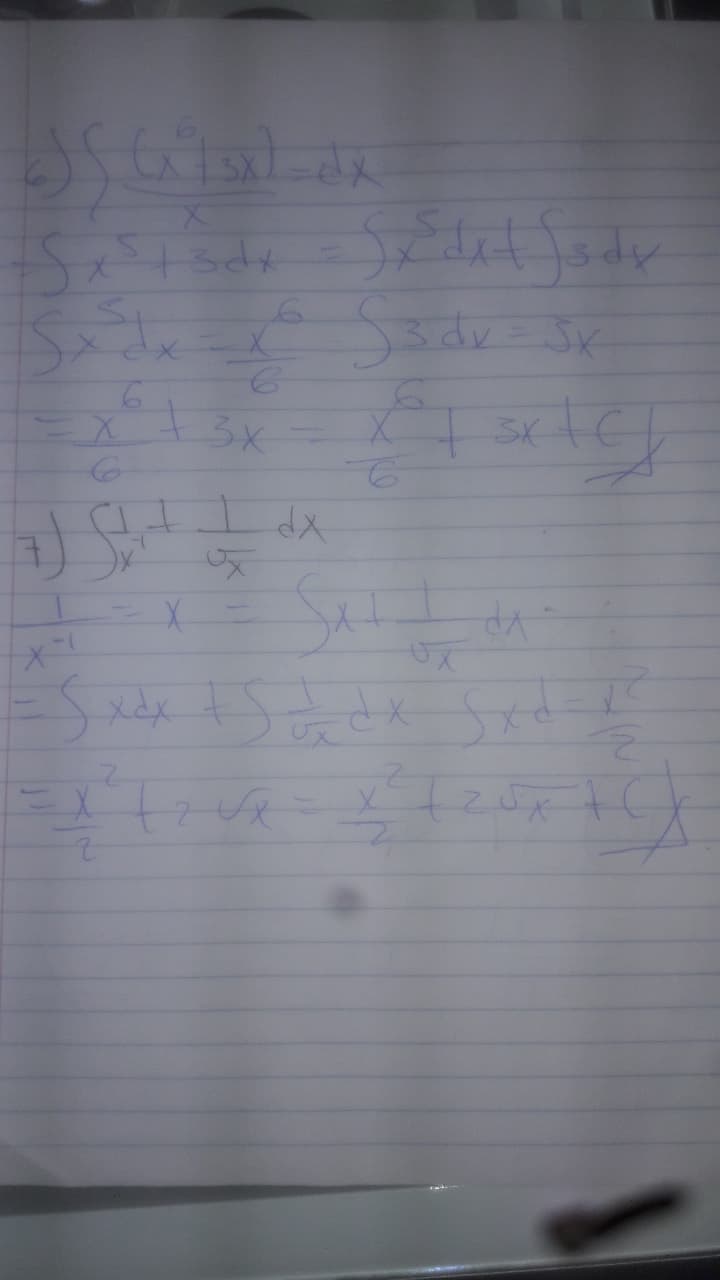 6) ∫ (x⁶+3x)/x = dx
= ∫ x⁵ + 3 dx = ∫ x⁵ dx + ∫ 3 dx
∫ x⁵ dx = x⁶/6 ∫ 3 dx = 3x
= x⁶/6 + 3x = x⁶/6 + 3x + C
7) ∫ 1/x⁻¹ + 1/√x dx
1/x⁻¹ = x = ∫ x + 1/√x dx
= ∫ x dx + ∫ 1/√x dx ∫ x d = x²/2
= x²/2 + 2√x = x²/2 + 2√x + C